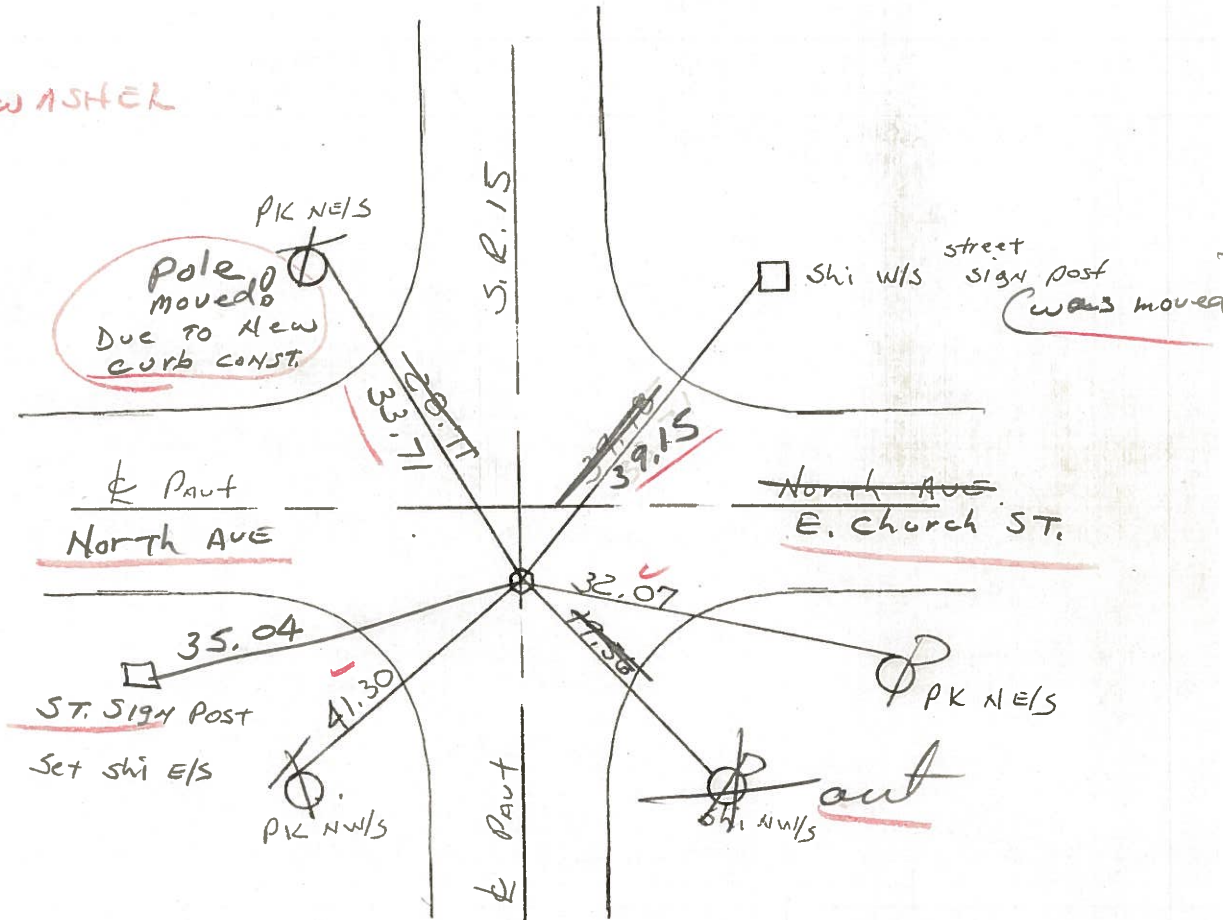 WASHER
PK NE/S
Pole
moved!
Due To New
curb CONST.
S.R. 15
street
Shi W/S sign post
(was moved
33.71
39.15
℄ PAVT
North AVE
North AVE.
E. Church ST.
32.07
35.04
41.30
ST. Sign Post
Set Shi E/S
PK NW/S
℄ PAVT
PK NE/S
Shi NW/S
out